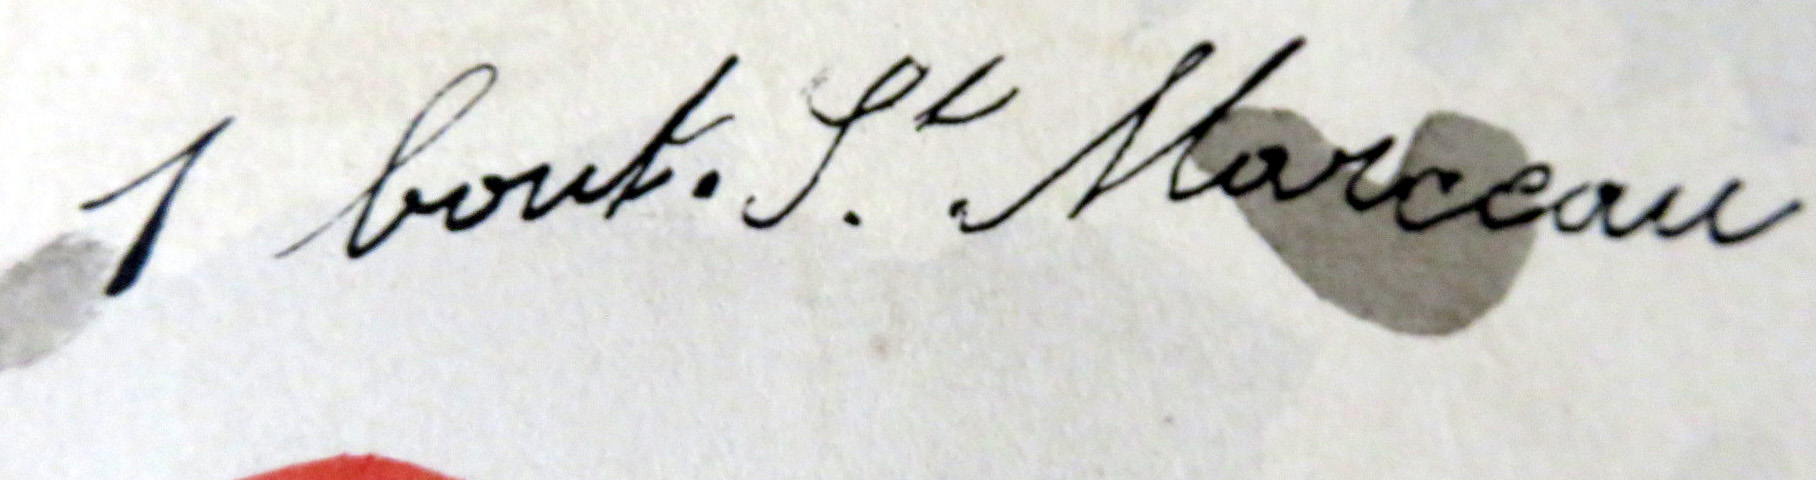 1 bout. St. Marceau